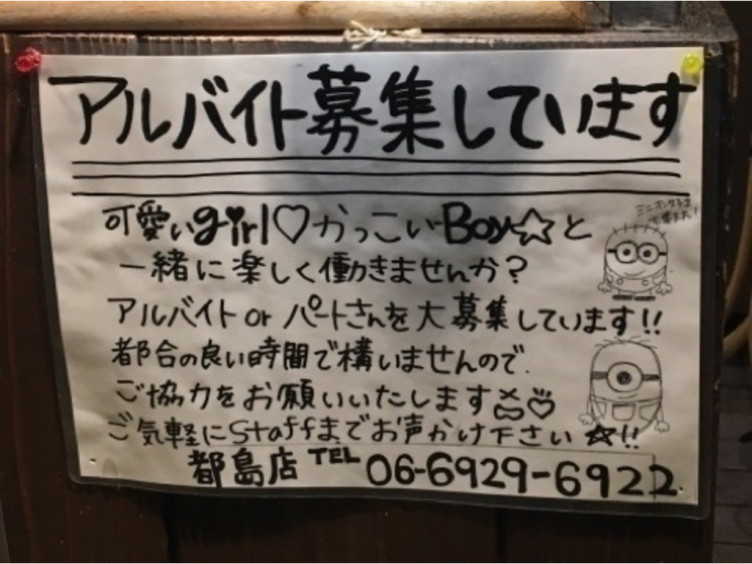 アルバイト募集しています
可愛いgirl♡かっこいいBoy☆と
一緒に楽しく働きませんか？
アルバイト or パートさんを大募集しています!!
都合の良い時間で構いませんので、
ご協力をお願いいたします
ご気軽にStaffまでお声かけ下さい☆!!
都島店 TEL 06-6929-6922